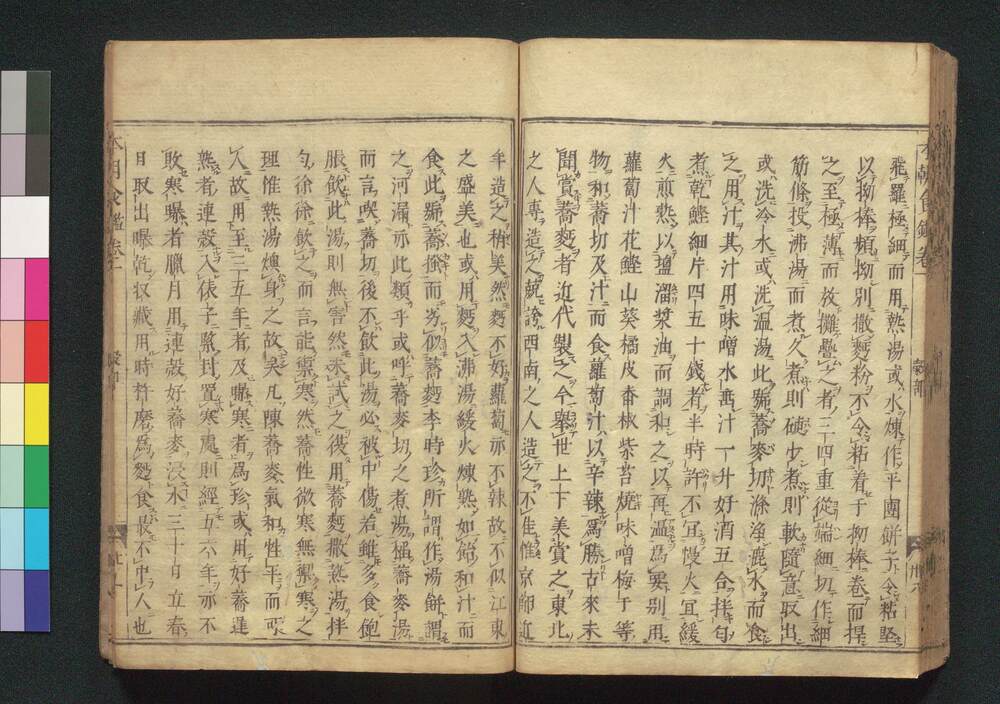 飛羅極細而用熱湯或水煉作平團餅子令粘堅
以拗棒頻拗別撒麪粉不令粘着于拗棒卷而捍
之至極薄而放攤疊之者三四重從端細切作細
筋條投沸湯而煮久煮則硬少煮則軟隨意取出
或洗冷水或洗温湯此號蕎麥切滌淨漉水而食
之用汁其汁用味噌水垂汁一升好酒五合拌勻
煮乾鰹細片四五十錢者半時許不宜慢火宜緩
火煎熟以塩溜漿油而調和之以再温爲要別用
蘿蔔汁花鰹山葵橘皮番椒紫苔燒味噌梅干等
物和蕎切及汁而食蘿蔔汁以辛辣爲勝古來未
聞賞蕎麪者近代製之今擧世上下美賞之東北
之人專造之競誇西南之人造之不佳惟京師近
年造之稍美然麪不好蘿蔔亦不辣故不似江東
之盛美也或用麪入沸湯緩火煉熟如飴和汁而
食此號蕎搔而
蕎麪李時珍所謂作湯餅謂
之河漏亦此類乎或呼蕎麥切之煮湯
蕎麥湯
而言喫蕎切後不飲此湯必被中傷若雖多食飽
脹飲此湯則無害然未試之後用蕎麪撒熱湯拌
勻徐徐飲之而言能禦寒然蕎性微寒無禦寒之
理惟熱湯燠身之故矣凡陳蕎麥氣和性平而可
人故用至三五年者及曝寒者爲珍或用好蕎蓬
熟者連殼入俵子緊封置寒處則經五六年亦不
敗寒曝者臘月用連殼好蕎麥浸水三十日立春
日取出曝乾収藏用時杵磨爲麪食最不中人也